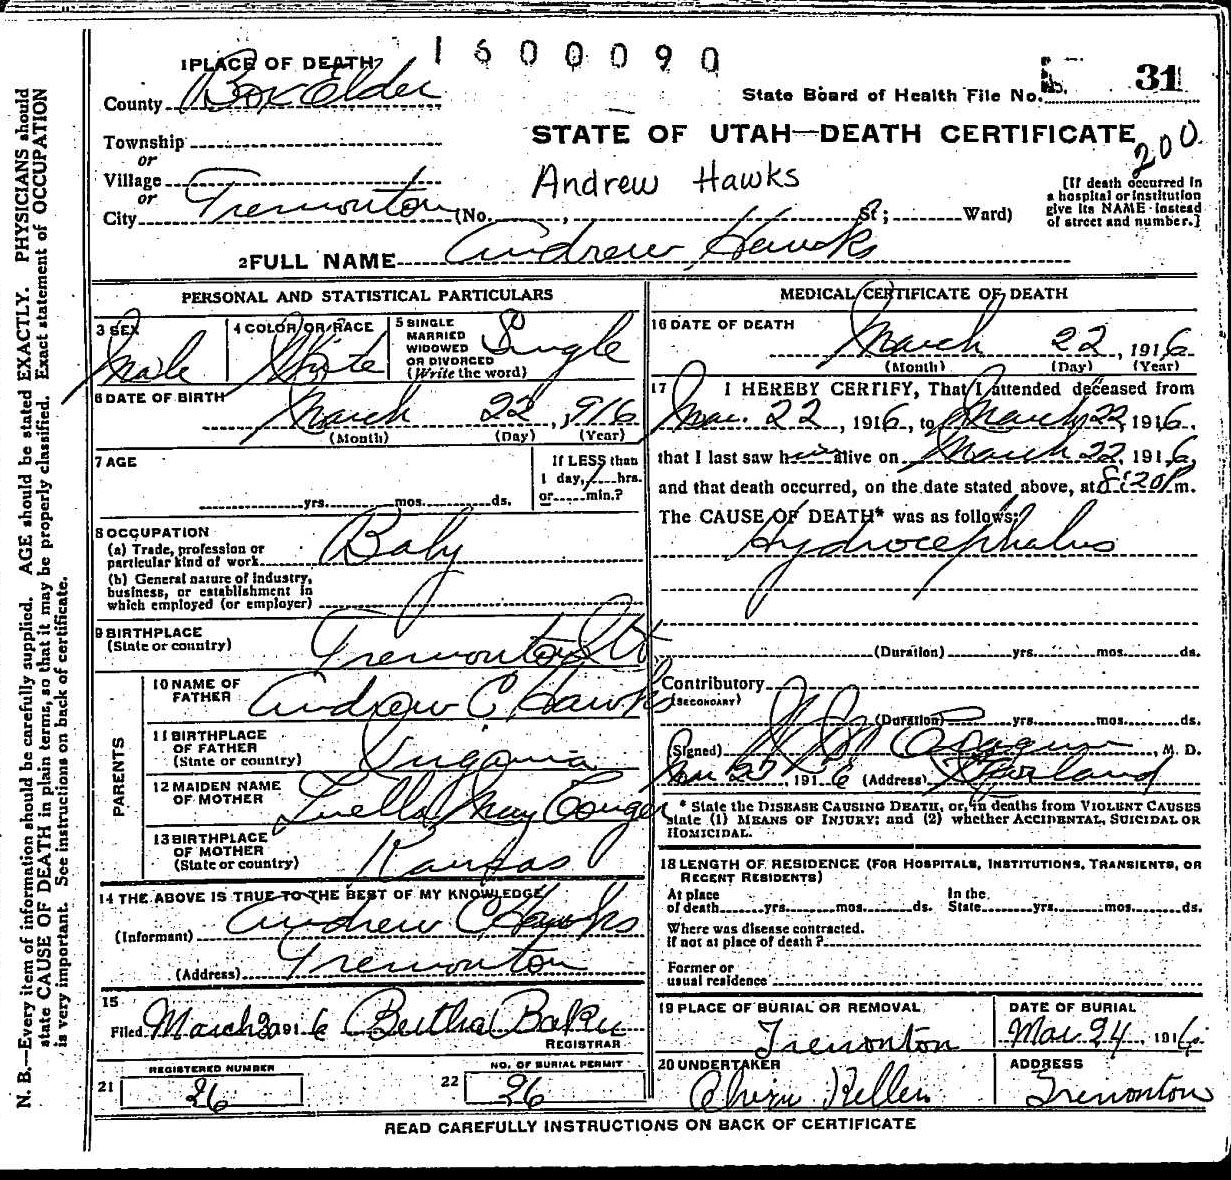 1 6 0 0 0 9 0
1 PLACE OF DEATH
County Box Elder
State Board of Health File No. 31
Township
or
Village
or
City Tremonton (No. , St; Ward)
STATE OF UTAH—DEATH CERTIFICATE
200
Andrew Hawks
[If death occurred in
a hospital or institution
give its NAME instead
of street and number.]
2 FULL NAME Andrew Hawks
PERSONAL AND STATISTICAL PARTICULARS
3 SEX Male
4 COLOR OR RACE White
5 SINGLE
MARRIED
WIDOWED
OR DIVORCED
(Write the word)
Single
6 DATE OF BIRTH
March 22, 916
(Month) (Day) (Year)
7 AGE
yrs. mos. ds.
If LESS than
1 day, hrs.
or min.?
8 OCCUPATION
(a) Trade, profession or
particular kind of work Baby
(b) General nature of industry,
business, or establishment in
which employed (or employer)
9 BIRTHPLACE
(State or country) Tremonton Ut
PARENTS
10 NAME OF
FATHER Andrew C Hawks
11 BIRTHPLACE
OF FATHER
(State or country) Virginia
12 MAIDEN NAME
OF MOTHER Luella May Conger
13 BIRTHPLACE
OF MOTHER
(State or country) Kansas
14 THE ABOVE IS TRUE TO THE BEST OF MY KNOWLEDGE
(Informant) Andrew C Hawks
(Address) Tremonton
15
Filed March 191 6 Bertha Baker
REGISTRAR
REGISTERED NUMBER
21 26
NO. OF BURIAL PERMIT
22 26
MEDICAL CERTIFICATE OF DEATH
16 DATE OF DEATH
March 22, 1916
(Month) (Day) (Year)
17 I HEREBY CERTIFY, That I attended deceased from
Mar. 22, 1916, to March 22, 1916,
that I last saw h alive on March 22, 1916
and that death occurred, on the date stated above, at 8:20 P m.
The CAUSE OF DEATH* was as follows:
Hydrocephalus
(Duration) yrs. mos. ds.
Contributory
(SECONDARY)
(Duration) yrs. mos. ds.
(Signed) , M. D.
1916 (Address) Garland
* State the DISEASE CAUSING DEATH, or, in deaths from VIOLENT CAUSES
state (1) MEANS OF INJURY; and (2) whether ACCIDENTAL, SUICIDAL OR
HOMICIDAL.
18 LENGTH OF RESIDENCE (FOR HOSPITALS, INSTITUTIONS, TRANSIENTS, OR
RECENT RESIDENTS)
At place
of death yrs. mos. ds.
In the
State yrs. mos. ds.
Where was disease contracted.
if not at place of death?
Former or
usual residence
19 PLACE OF BURIAL OR REMOVAL
Tremonton
DATE OF BURIAL
Mar. 24, 1916
20 UNDERTAKER
ADDRESS
Tremonton
READ CAREFULLY INSTRUCTIONS ON BACK OF CERTIFICATE
N. B.—Every item of information should be carefully supplied. AGE should be stated EXACTLY. PHYSICIANS should
state CAUSE OF DEATH in plain terms, so that it may be properly classified. Exact statement of OCCUPATION
is very important. See instructions on back of certificate.